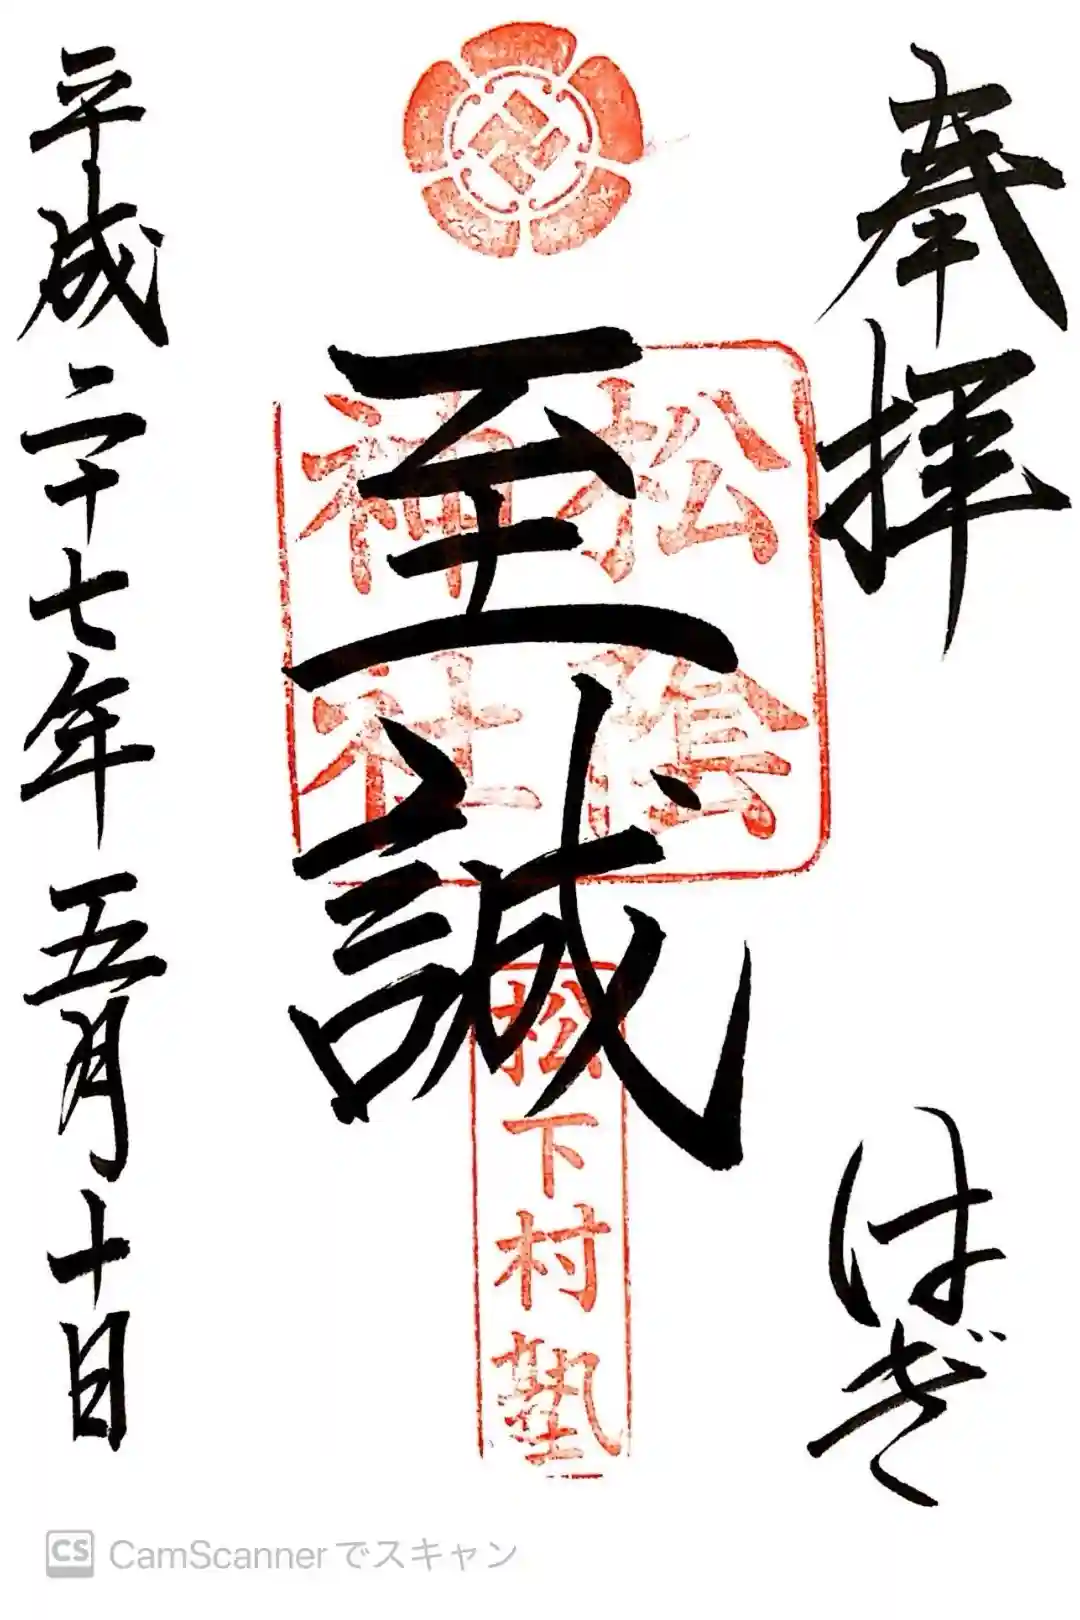 奉拝
はぎ
至誠
松陰
神社
松下村塾
平成二十七年五月十日
CS CamScannerでスキャン